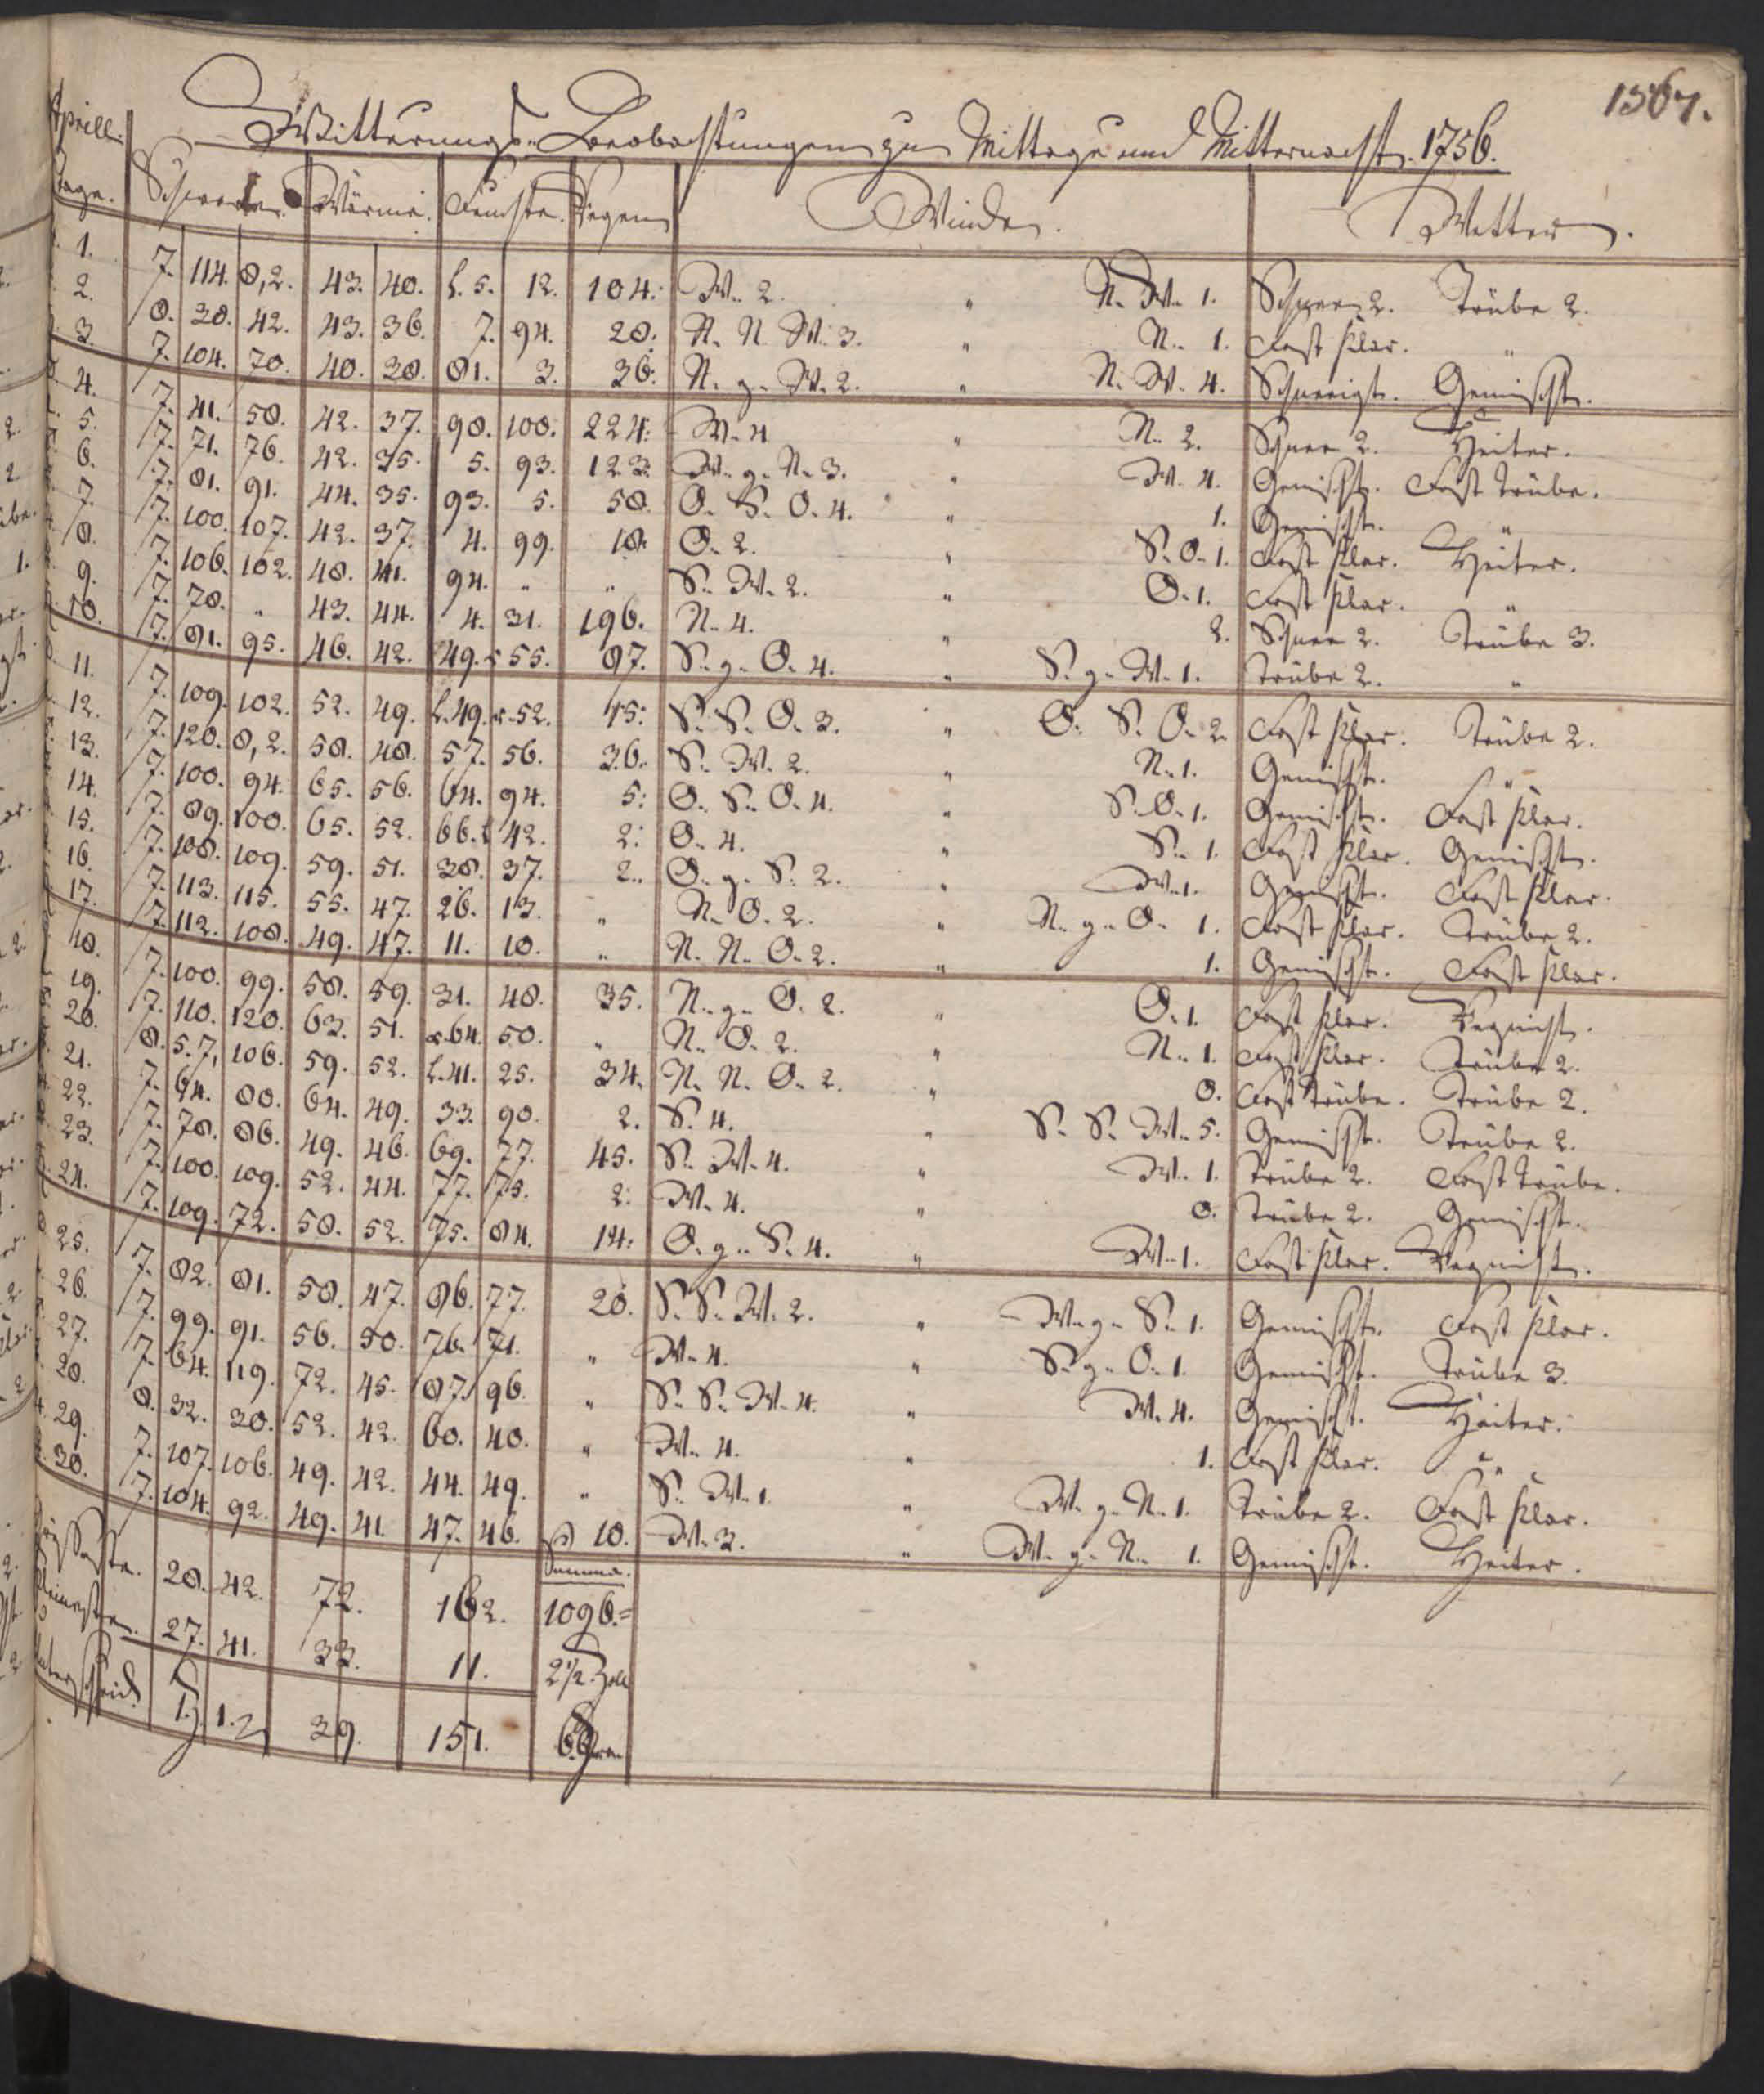 1567.
Aprill. Witterungs-Beobachtungen zu Mittage und Mitternacht. 1756.
Tage. Schwere. Wärme. Feuchte. Regen Winde. Wetter.
1. 7. 114. 8,2. 43. 40. L. 5. 12. 104. W. 2. " N. W. 1. Schnee 2. Trübe 2.
2. 8. 38. 42. 43. 36. 7. 94. 28. N. N. W. 3. " N. 1. Fast klar. "
3. 7. 104. 70. 40. 38. 81. 3. 36. N. g. W. 2. " N. W. 4. Schneeigt. Gemischt.
4. 7. 41. 58. 42. 37. 98. 100. 224. W. 4 " N. 2. Schnee 2. Heiter.
5. 7. 71. 76. 42. 35. 5. 93. 123. W. g. N. 3. " W. 4. Gemischt. Fast trübe.
6. 7. 81. 91. 44. 35. 93. 5. 58. O. S. O. 4. " 1. Gemischt. "
7. 7. 100. 107. 42. 37. 4. 99. 18. O. 2. " S. O. 1. Fast klar. Heiter.
8. 7. 106. 102. 48. 41. 94. " " S. W. 2. " O. 1. Fast klar. "
9. 7. 78. " 43. 44. 4. 31. 196. N. 4. " 2. Schnee 2. Trübe 3.
10. 7. 81. 95. 46. 42. 49. r 55. 87. S. g. O. 4. " S. g. W. 1. Trübe 2. "
11. 7. 109. 102. 52. 49. L. 49. r. 52. 15. S. S. O. 3. " O. S. O. 2. Fast klar. Trübe 2.
12. 7. 120. 8,2. 58. 48. 57. 56. 36. S. W. 2. " N. 1. Gemischt. "
13. 7. 100. 94. 65. 56. 64. 94. 5. O. S. O. 4. " S. O. 1. Gemischt. Fast klar.
14. 7. 89. 100. 65. 52. 66. L 42. 2. O. 4. " S. 1. Fast klar. Gemischt.
15. 7. 108. 109. 59. 51. 38. 37. 2. O. g. S. 2. " W. 1. Gemischt. Fast klar.
16. 7. 113. 115. 55. 47. 26. 13. " N. O. 2. " N. g. O. 1. Fast klar. Trübe 2.
17. 7. 112. 108. 49. 47. 11. 10. " N. N. O. 2. " 1. Gemischt. Fast klar.
18. 7. 100. 99. 58. 59. 31. 48. 35. N. g. O. 2. " O. 1. Fast klar. Regnicht.
19. 7. 110. 120. 63. 51. r 64. 50. " N. O. 2. " N. 1. Fast klar. Trübe 2.
20. 8. 5. 7, 106. 59. 52. L. 41. 25. 34. N. N. O. 2. " 0. Fast trübe. Trübe 2.
21. 7. 64. 80. 64. 49. 33. 90. 2. S. 4. " S. S. W. 5. Gemischt. Trübe 2.
22. 7. 78. 86. 49. 46. 69. 77. 45. S. W. 4. " W. 1. Trübe 2. Fast trübe.
23. 7. 100. 109. 52. 44. 77. 75. 2. W. 4. " 0. Trübe 2. Gemischt.
24. 7. 109. 72. 58. 52. 75. 84. 14. O. g. S. 4. " W. 1. Fast klar. Regnicht.
25. 7. 82. 81. 58. 47. 86. 77. 28. S. S. W. 2. " W. g. S. 1. Gemischt. Fast klar.
26. 7. 99. 91. 56. 50. 76. 71. " W. 4. " S. g. O. 1. Gemischt. Trübe 3.
27. 7. 64. 119. 72. 45. 87. 96. " S. S. W. 4. " W. 4. Gemischt. Heiter.
28. 8. 32. 30. 52. 42. 60. 40. " W. 4. " 1. Fast klar. "
29. 7. 107. 106. 49. 42. 44. 49. " S. W. 1. " W. g. N. 1. Trübe 2. Fast klar.
30. 7. 104. 92. 49. 41. 47. 46. 10. W. 3. " W. g. N. 1. Gemischt. Heiter.
28. 42. 72. 162. Summa. 1096.=
27. 41. 33. 11. 2 1/2. Zoll
1. 1. 39. 151.